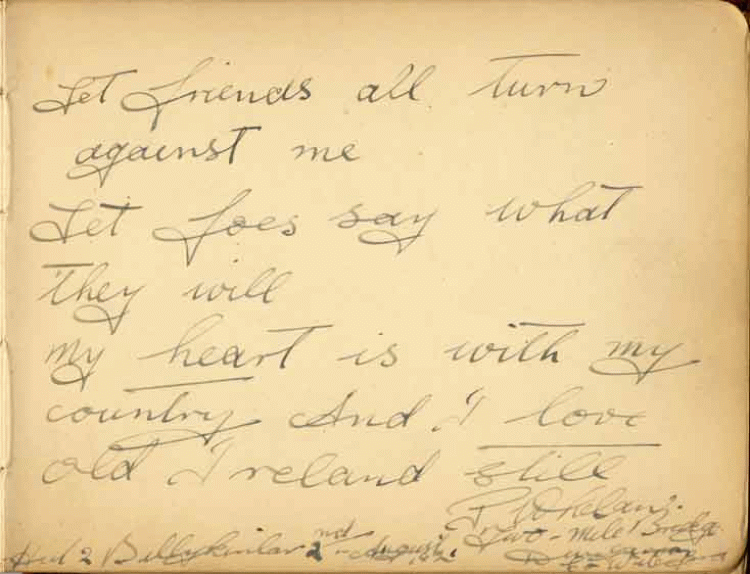 Let friends all turn
against me
Let foes say what
they will
my heart is with my
country And I love
old Ireland still
P Whelan.
Two-Mile Bridge
Hut 2 Ballykinlar 2nd August